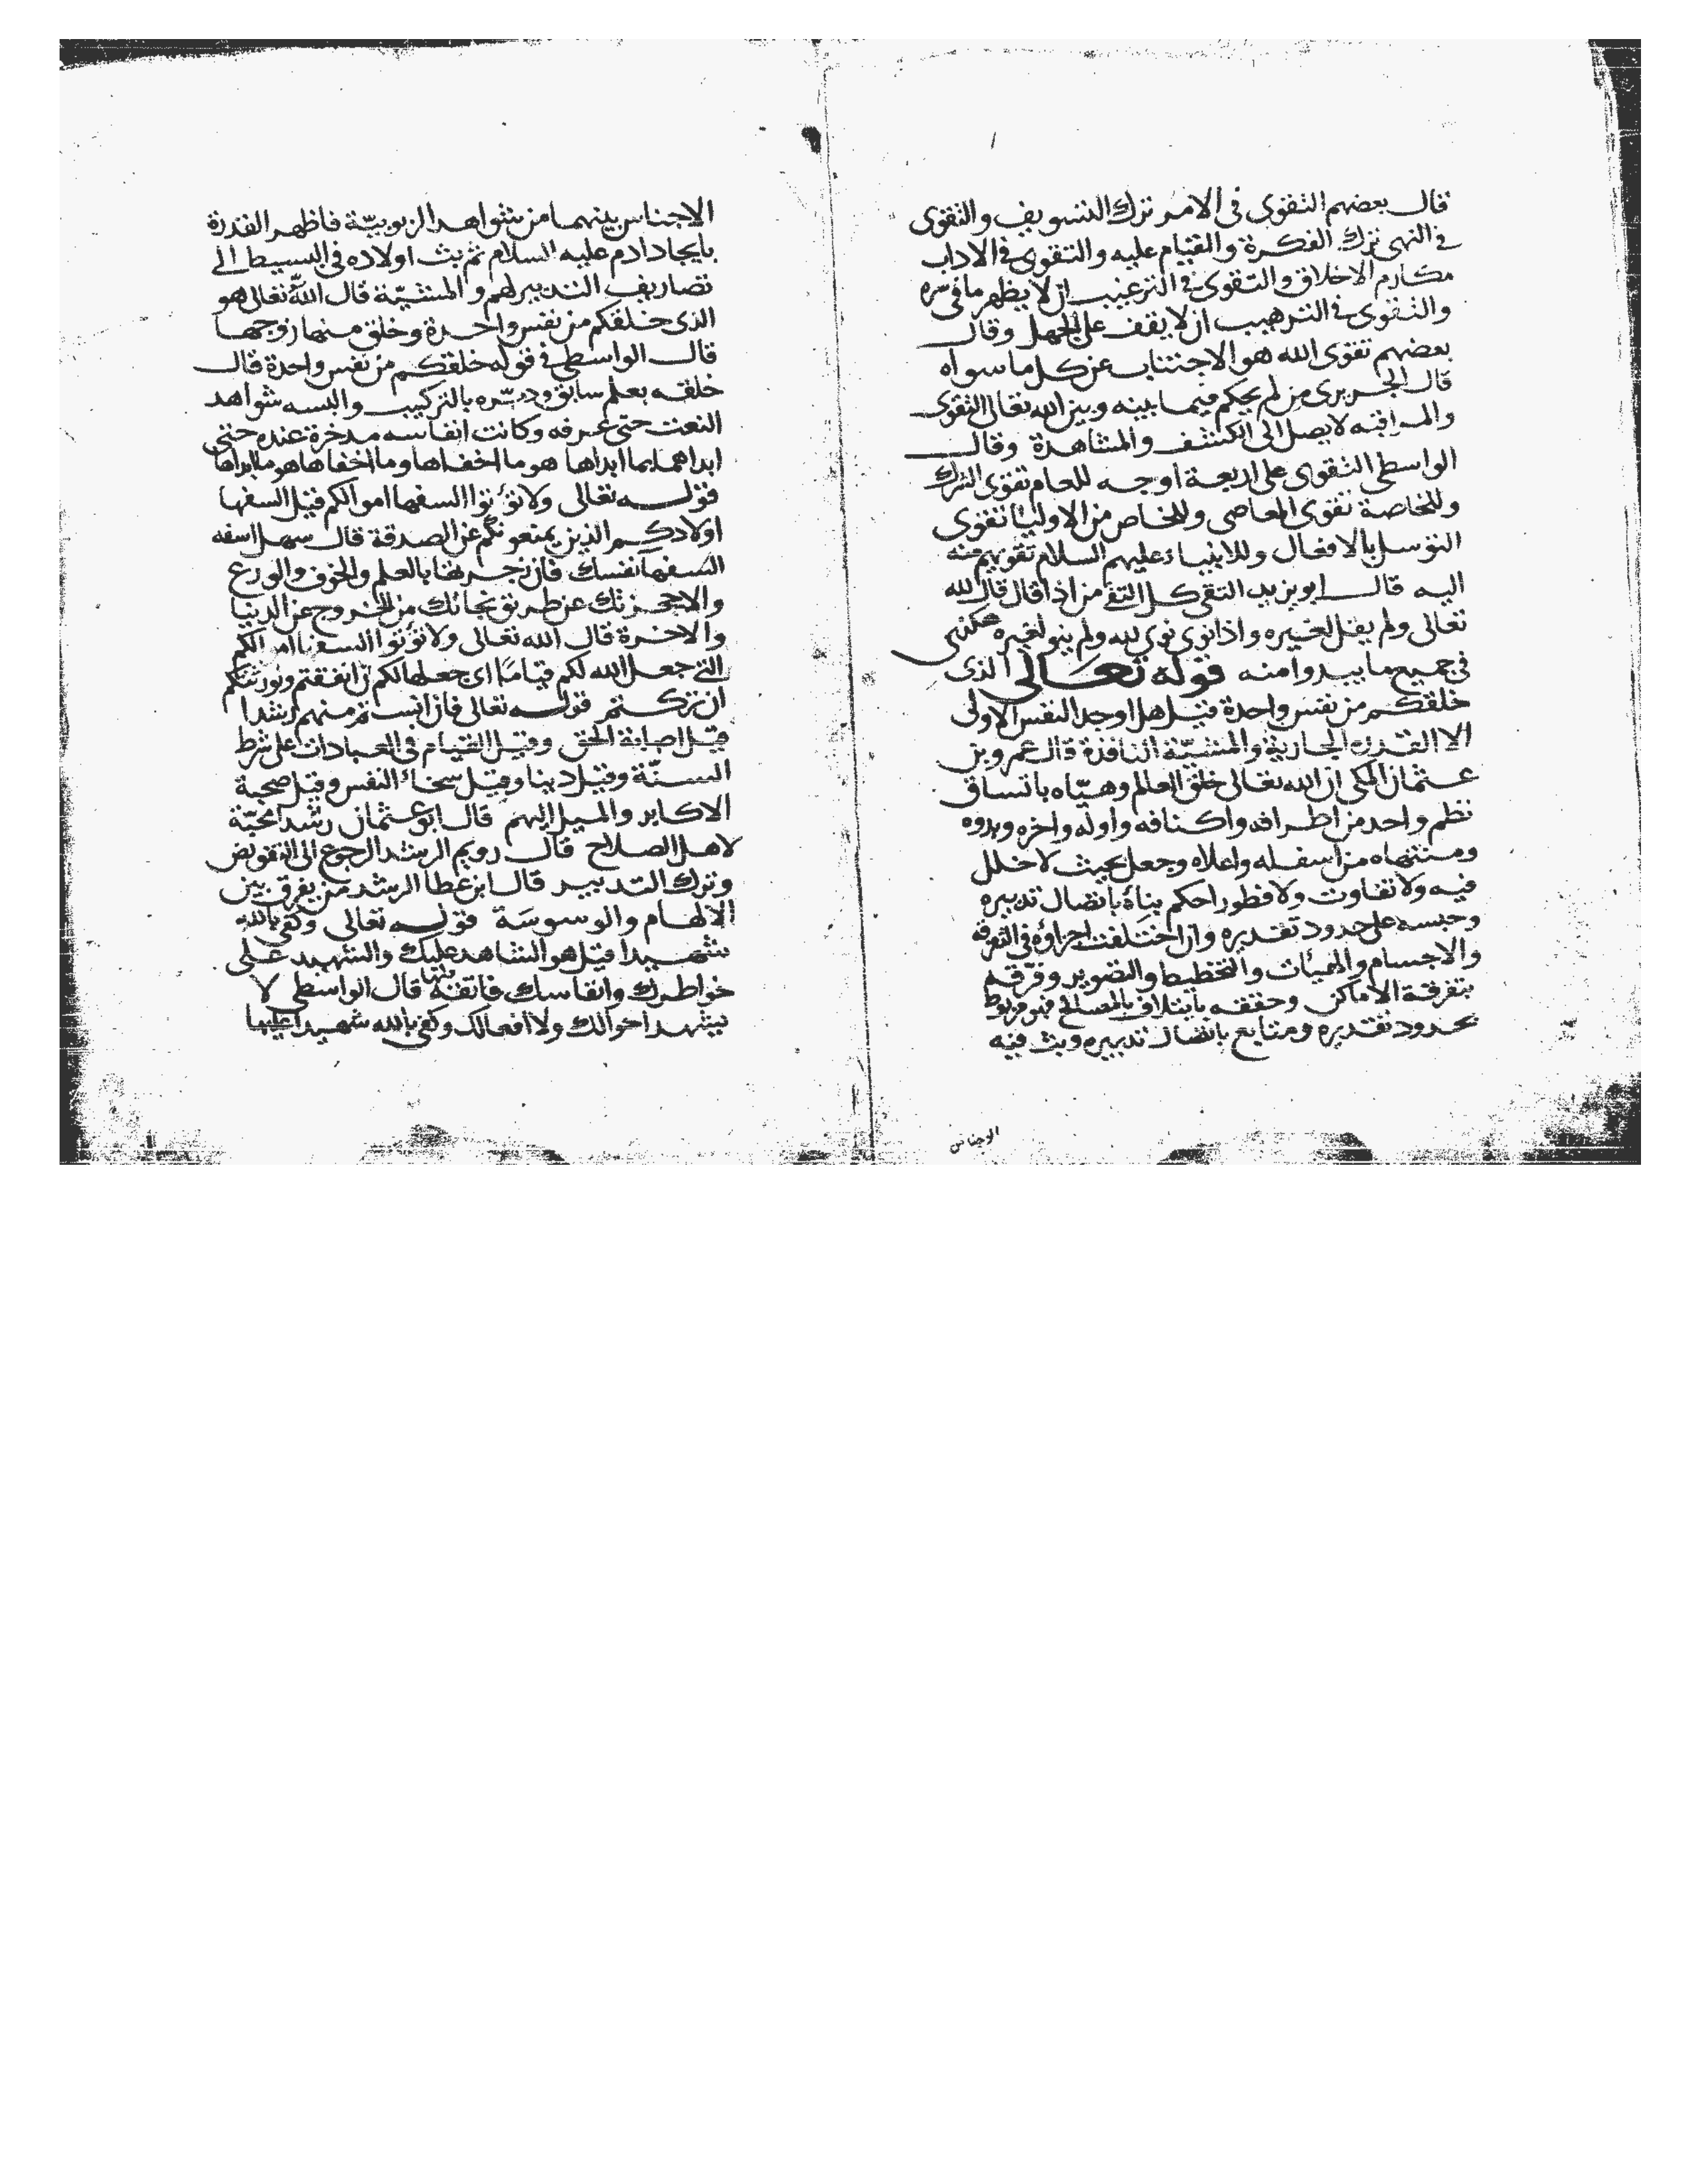 قال بعضهم التقوى فى الامر ترك التسويف والتقوى
فى النهى ترك الفكرة والقيام عليه والتقوى فى الاداب
مكارم الاخلاق والتقوى فى الترغيب ان لا يظهر ما فى سره
والتقوى فى الترهيب ان لا يقف على الجهل وقال
بعضهم تقوى الله هو الاجتناب عن كل ما سواه
قال الجريرى من لم يحكم فيما بينه وبين الله تعالى التقوى
والمراقبه لا يصل الى الكشف والمشاهدة وقال
الواسطى التقوى على اربعة اوجه للعام تقوى الشرك
وللخاصة تقوى المعاصى وللخاص من الاوليا تقوى
التوسل بالافعال وللانبياء عليهم السلام تقويهم منه
اليه قال ابو يزيد التقى كل التقى من اذا قال قال لله
تعالى ولم يقل لغيره واذا نوى نوى لله ولم ينو لغيره هكذى
فى جميع ما يبدوا منه قوله تعالى الذى
خلقكم من نفس واحدة قيل هل اوجد النفس الاولى
الا القدره الجارية والمشيّة النافذة قال عمرو بن
عثمان المكى ان الله تعالى خلق العلم وهيّاه باتساق
نظم واحد من اطرافه واكنافه واوله واخره وبدوه
ومنتهاه من اسفله واعلاه وجعل بحيث لا خلل
فيه ولا تفاوت ولا فطور احكم بناة باتصال تدبيره
وحبسه على حدود تقديره وان اختلفت اجزاؤه فى التفرقه
والاجسام والهيئات والتخطيط والتصوير وفرّقهم
بتفرقة الاماكن وحققه بايتلاف بالمصالح فهو مربوط
بحدود تقديره ومتابع باتصال تدبيره وبث فيه
الاجناس
الاجناس بينهما من شواهد الربوبيّة فاظهر القدرة
بايجاد ادم عليه السلام ثم بث اولاده فى البسيط الى
تصاريف التدبير لهم والمشيّة قال الله تعالى هو
الذى خلقكم من نفس واحدة وخلق منها زوجها
قال الواسطى فى قوله خلقكم من نفس واحدة قال
خلقه بعلم سابق ودبّره بالتركيب والبسه شواهد
النعت حتى عرفه وكانت انفاسه مدخرة عنده حتى
ابداها بما ابداها هو ما اخفاها وما اخفاها هو ما ابداها
قوله تعالى ولا تؤتوا السفها اموالكم قيل السفها
اولادكم الذين يمنعونكم عن الصدقة قال سهل اسفه
السفها نفسك فان زجرتها بالعلم والخوف والورع
والا حجزتك عن طريق نجاتك من الخروج عن الدنيا
والاخرة قال الله تعالى ولا تؤتوا السفها اموالكم
التى جعل الله لكم قياما اى جعلها لكم ان انفقتم ونورثتكم
ان تركتم قوله تعالى فان انستم منهم رشدا
قيل اصابة الحق وقيل القيام فى العبادات على شرط
السنّة وقيل دينا وقيل سخاء النفس وقيل صحبة
الاكابر والميل اليهم قال ابو عثمان رشدا محبّة
لاهل الصلاح قال رويم الرشد الرجوع الى التفويض
وترك التدبير قال ابن عطا الرشد من يفرق بين
الالهام والوسوسة قوله تعالى وكفى بالله
شهيدا قيل هو الشاهد عليك والشهيد على
خواطرك وانفاسك فاتقه قال الواسطى لا
يشهد احوالك ولا افعالك وكفى بالله شهيدا عليها